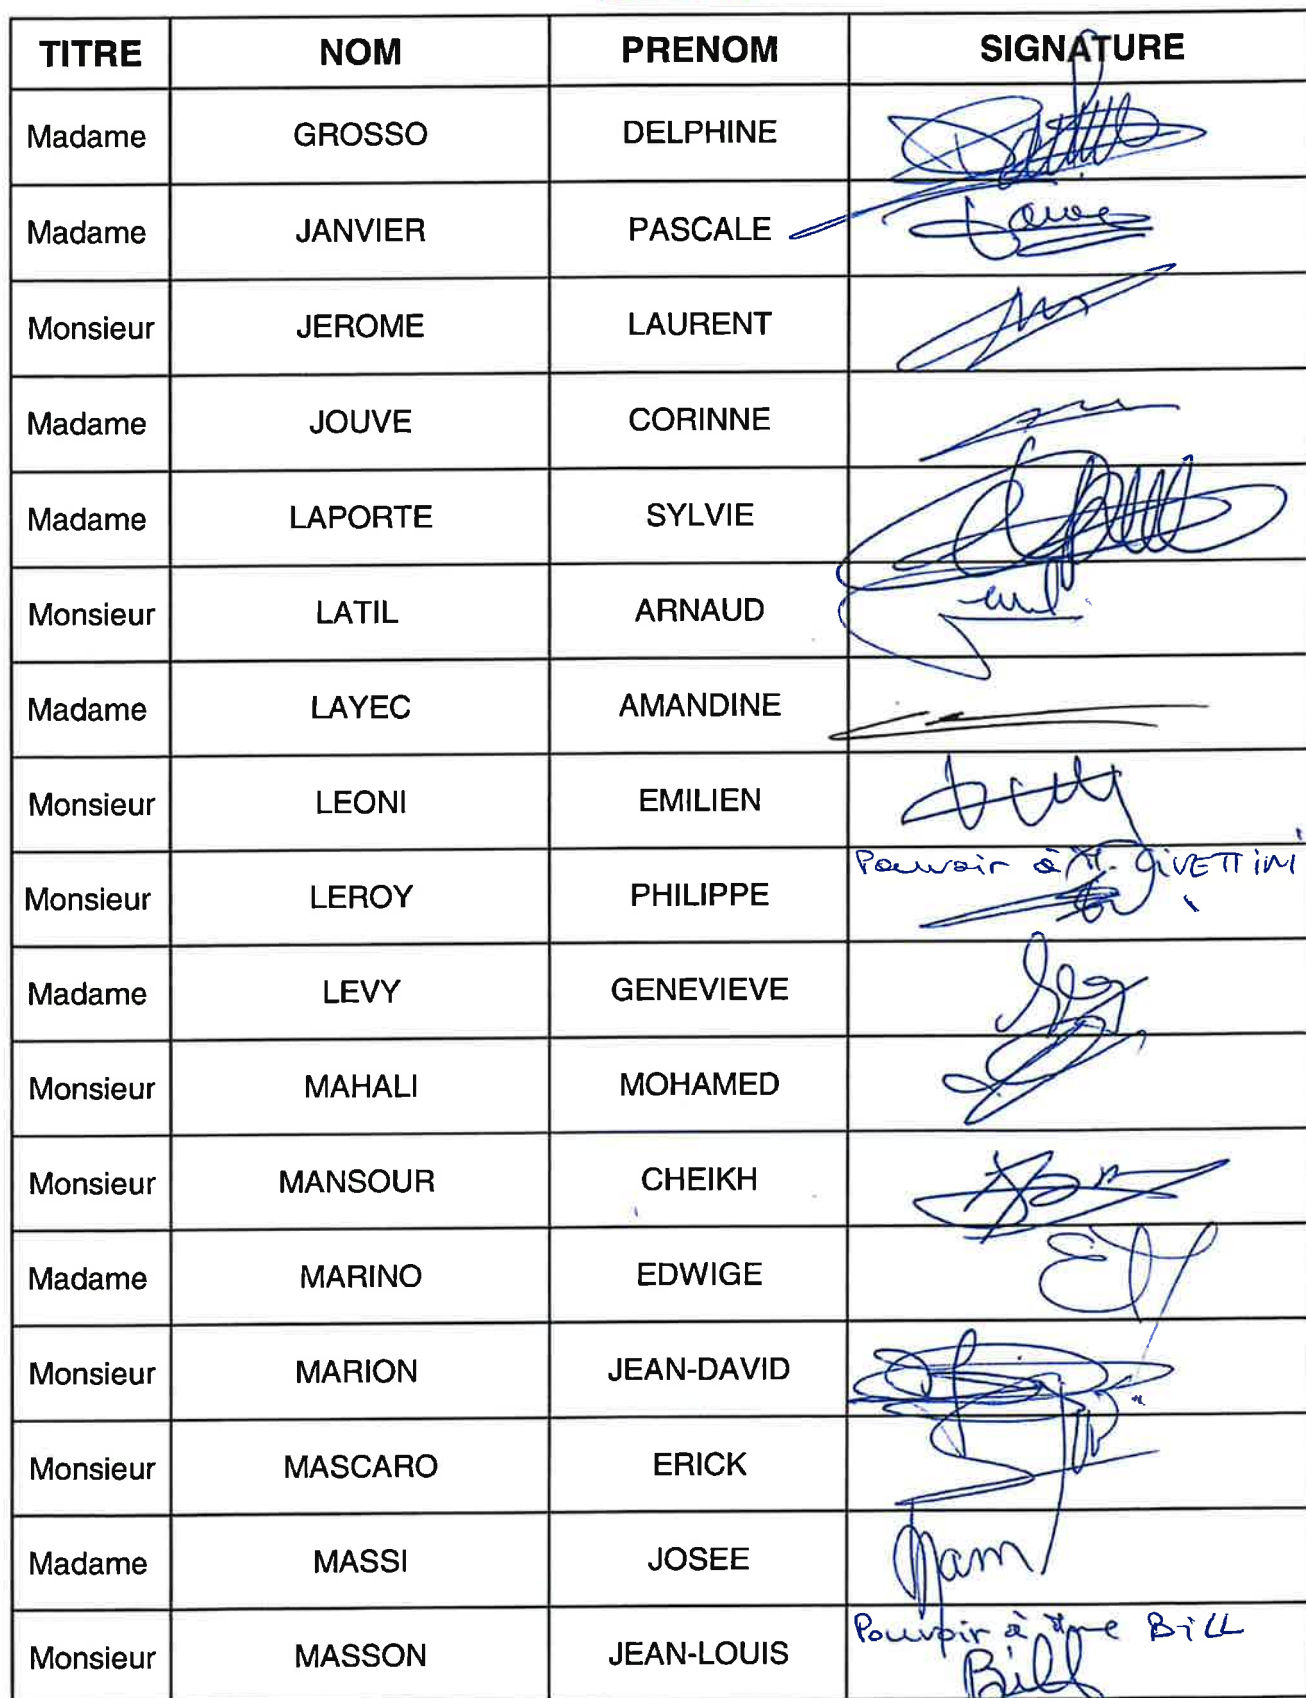 TITRE NOM PRENOM SIGNATURE
Madame GROSSO DELPHINE
Madame JANVIER PASCALE
Monsieur JEROME LAURENT
Madame JOUVE CORINNE
Madame LAPORTE SYLVIE
Monsieur LATIL ARNAUD
Madame LAYEC AMANDINE
Monsieur LEONI EMILIEN
Monsieur LEROY PHILIPPE Pouvoir à M. GIVETTINI
Madame LEVY GENEVIEVE
Monsieur MAHALI MOHAMED
Monsieur MANSOUR CHEIKH
Madame MARINO EDWIGE
Monsieur MARION JEAN-DAVID
Monsieur MASCARO ERICK
Madame MASSI JOSEE
Monsieur MASSON JEAN-LOUIS Pouvoir à Mme Bill
Bill